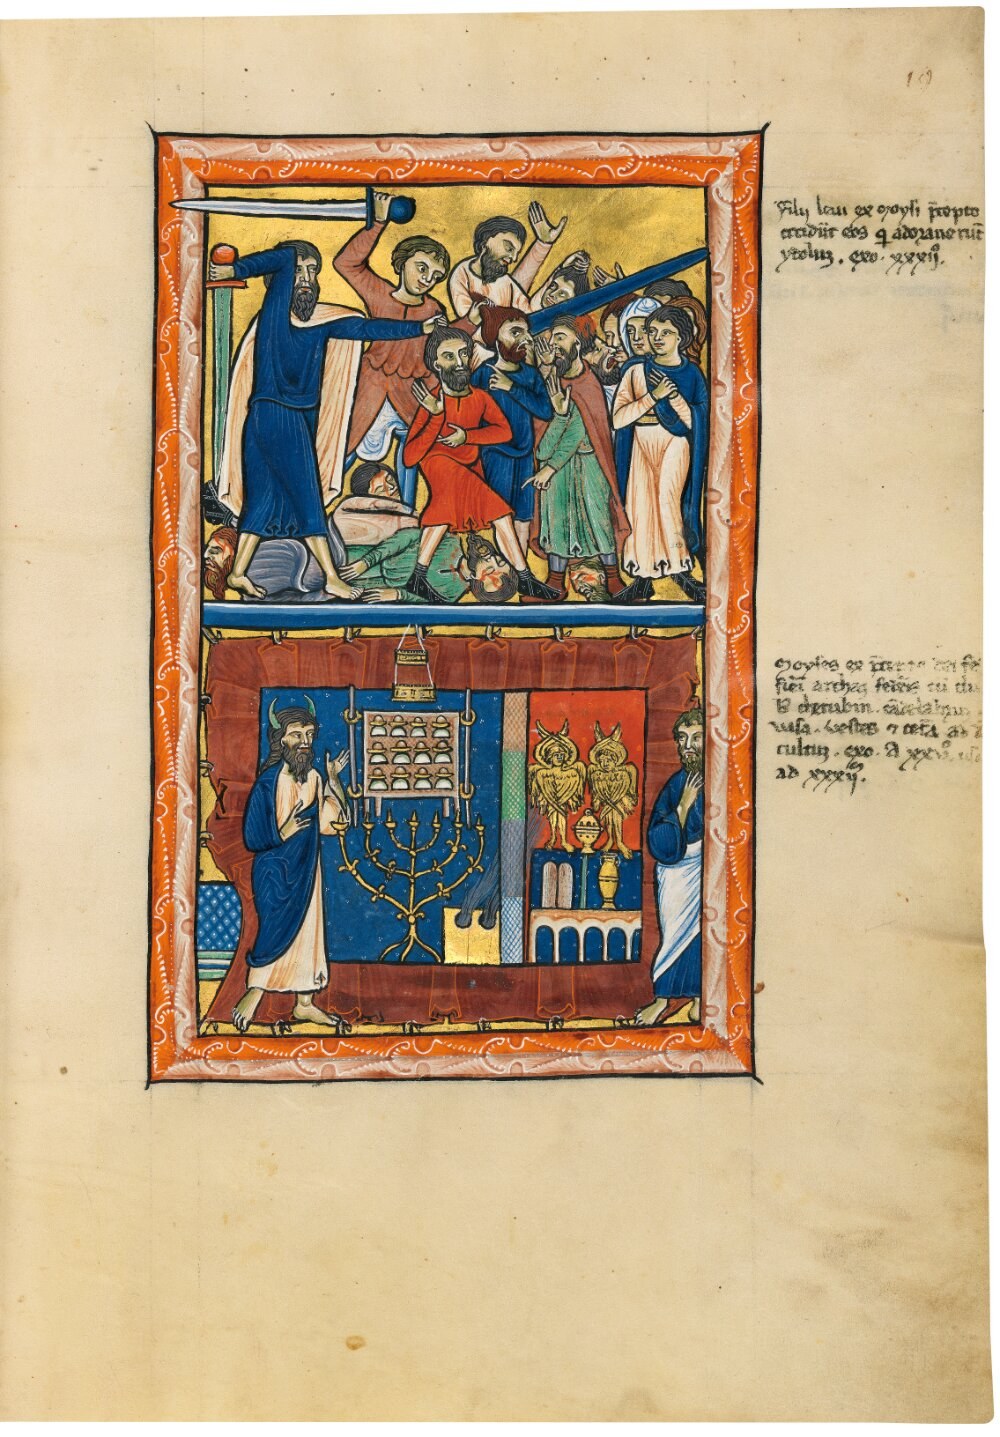 19
Filij leui ex moysi p̄cepto
occidūt eos q̄ adorauerūt
ydolum. exo. xxxij.
Moyses ex p̄cepto dei fe
fieri archam federis cū du
b; cherubin. cādelabrum
uasa. uestes ⁊ cetā ad d
cultum. exo. A xxvº.
ad xxxijº.